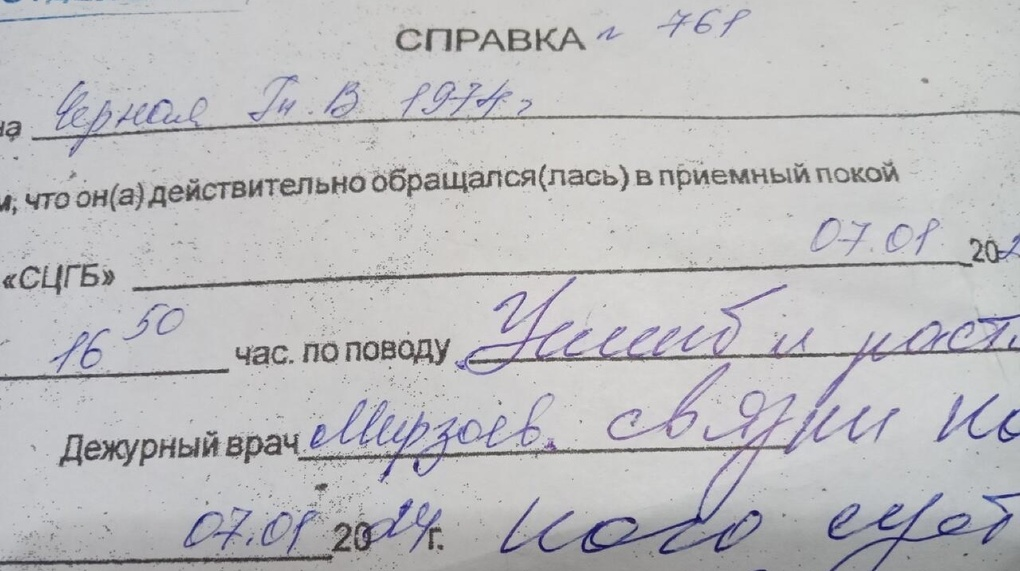 СПРАВКА № 761
на Черная Гн. В 1974 г
м, что он(а) действительно обращался(лась) в приемный покой
«СЦГБ» 07.01 202
16 50 час. по поводу Ушиб и раст.
Дежурный врач Мирзоев. связки ко
07.01 2024 г. ного суст